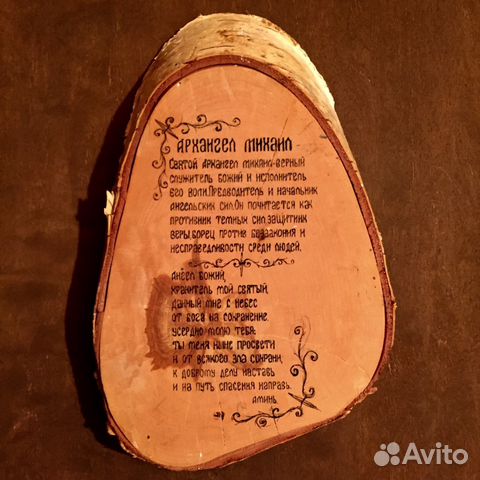 Архангел Михаил
Святой Архангел Михаил-верный
служитель Божий и исполнитель
Его воли.Предводитель и начальник
Ангельских сил.Он почитается как
противник темных сил,защитник
веры,борец против беззакония и
несправедливости среди людей.
Ангел Божий,
хранитель мой святый,
данный мне с небес
от Бога на сохранение
усердно молю тебя:
ты меня ныне просвети
и от всякого зла сохрани,
к доброму делу наставь
и на путь спасения направь.
Аминь.
Avito